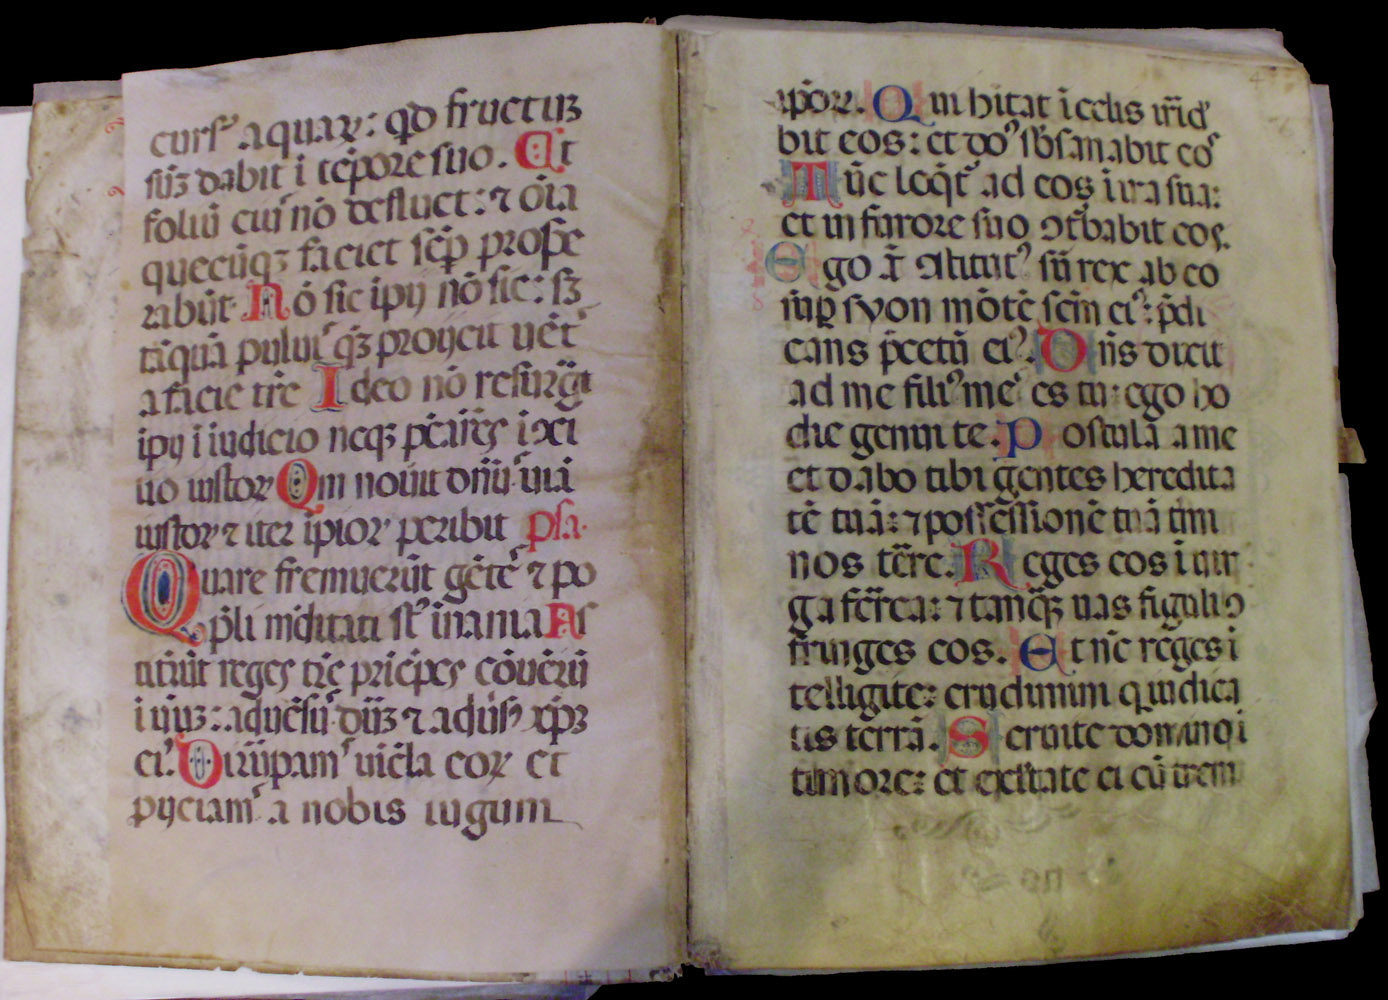 curs᷒ aquaꝝ: qd̄ fructuꝫ
suū dabit ī tēpore suo. Et
foliū cuiꝰ nō defluet: ⁊ oīa
quecūqꝫ faciet sēp prospe
rabūt. Nō sic ipij nō sic: sꝫ
tāquā puluiꝰ qꝫ proijcit uēt
a facie tr̄e Ideo nō resurgūt
ipij ī iudicio neqꝫ pc̄ār̄es ī ɔci
lio iustoꝝ Qm̄ nouit dn̄s uiā
iustoꝝ ⁊ iter ipioꝝ peribit psa.
Quare fremuerūt gētes ⁊ po
pl̄i meditati st̄ inania As
titūt reges tr̄e prīcipes cōuēri
ī unū: aduēsū dn̄ꝫ ⁊ aduēsꝰ xp̄ꝫ
eiꝰ. Dirūpamꝰ uīcla eoꝝ et
proijciamꝰ a nobis iugum
ipōꝝ. Qui hītat ī celis irrid̄
bit eos: et dō sb̄sanabit eos
Tūc loq̄t ad eos ī ira sua:
et in furore suo ɔt̄babit eos.
Ego aūt ɔstitutꝰ sū rex ab eo
suꝑ syon mōtē scm̄ eiꝰ: p̄di
cans p̄ceptū eiꝰ. Dn̄s dixit
ad me filiꝰ meꝰ es tu: ego ho
die genui te. Postula a me
et dabo tibi gentes heredita
tē tuā: ⁊ possessionē tuā tmi
nos tērre. Reges eos ī uir
ga ferrea: ⁊ tanqꝫ uas figulis
fringes eos. Et nc̄ reges ī
telligite: erudimini qui iudica
tis terrā. Seruite domino ī
timore: et exltate ei cū trem